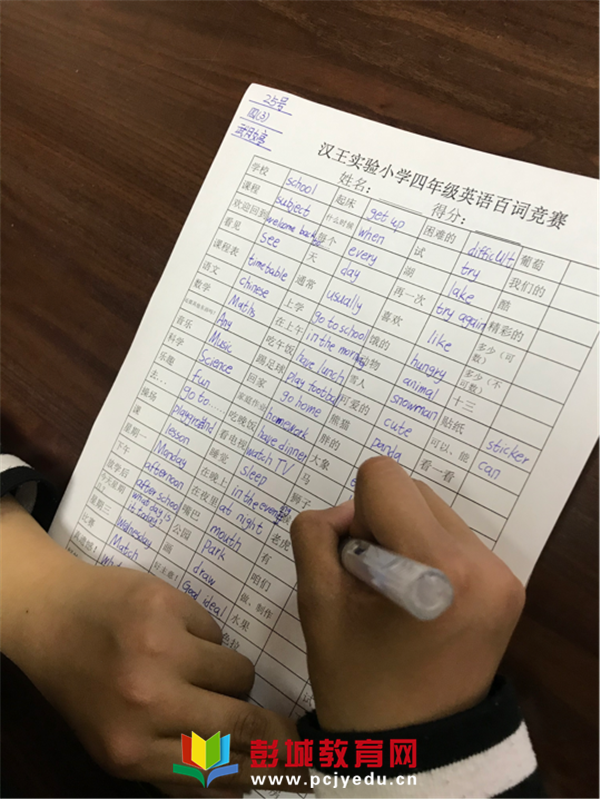 25号
四(3)
汉王实验小学四年级英语百词竞赛
姓名: 得分:
学校 school 起床 get up 困难的 difficult 葡萄
课程 subject 什么时候 when 试 try 我们的
欢迎回到 welcome back 每个 every 湖 lake 酷
看见 see 天 day 再一次 try again 精彩的
课程表 timetable 通常 usually 喜欢 like 多少(可数)
语文 chinese 上学 go to school 饿的 hungry 多少(不可数)
数学 Maths 在上午 in the morning 动物 animal 十三
Any 吃午饭 have lunch 雪人 snowman 贴纸 sticker
音乐 Music 踢足球 play football 可爱的 cute 可以,能 can
科学 Science 回家 go home 熊猫 panda 看一看
乐趣 fun 家庭作业 homework 胖的
去… go to…… 吃晚饭 have dinner 大象
操场 playground 看电视 watch TV 马
课 lesson 睡觉 sleep 狮子
星期一 Monday 在晚上 in the evening
下午 afternoon 在夜里 at night 老虎
放学后 after school 嘴巴 mouth 有
今天星期几? what day is it today? 公园 park 咱们
星期三 Wednesday 画 draw 做、制作
比赛 Match 好主意! Good idea! 水果
真遗憾!
色拉
彭城教育网
www.pcjyedu.cn